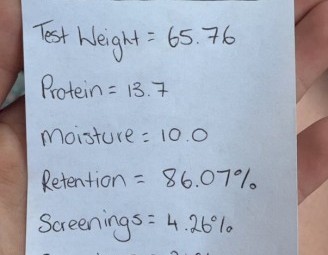 Test Weight = 65.76
Protein = 13.7
Moisture = 10.0
Retention = 86.07%
Screenings = 4.26%